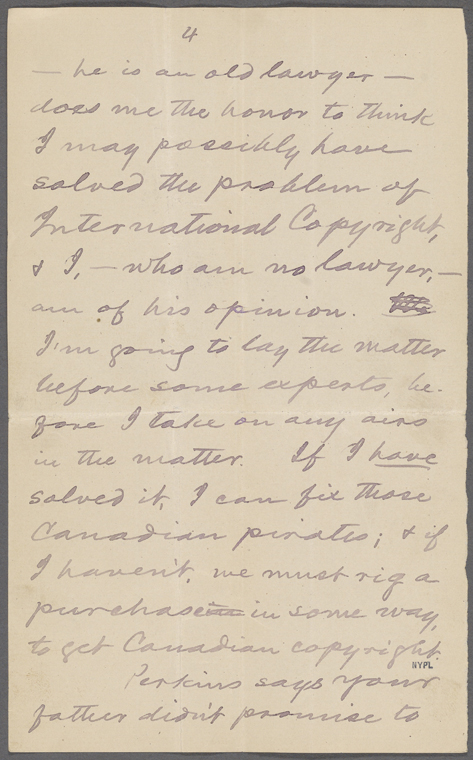 4
— he is an old lawyer —
does me the honor to think
I may possibly have
solved the problem of
International Copyright,
& I, — who am no lawyer, —
am of his opinion.
I'm going to lay the matter
before some experts, be-
fore I take on any airs
in the matter. If I have
solved it, I can fix those
Canadian pirates; & if
I haven't, we must rig a
purchase in some way,
to get Canadian copyright.
NYPL
Perkins says your
father didn't promise to